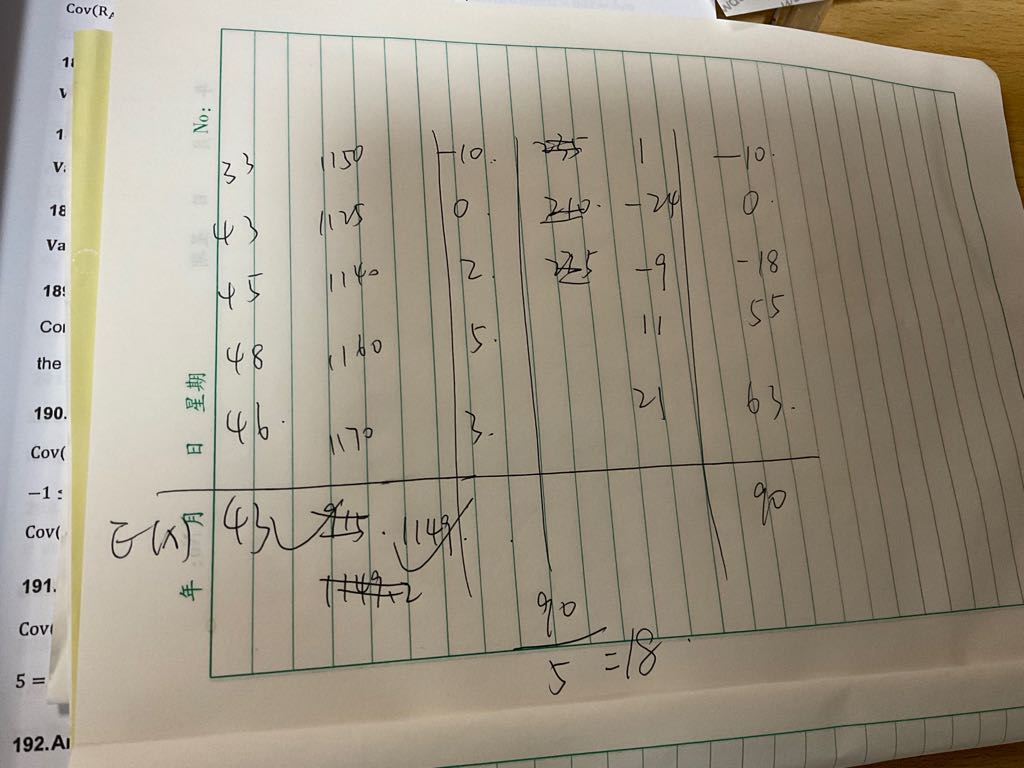 Cov(R
No:
33 1150 -10. 235 1 -10.
43 1125 0 210. -24 0.
45 1140 2. 225 -9 -18
48 1160 5. 11 55
46. 1170 3. 21 63.
E(X) 43 915. 1149. 90
1149.2
90
5 =18
年 月 日 星期
1.
V
18
Va
189
Cov
the
190.
Cov(
−1 ≤
Cov(
191.
Cov(
5 =
192.A